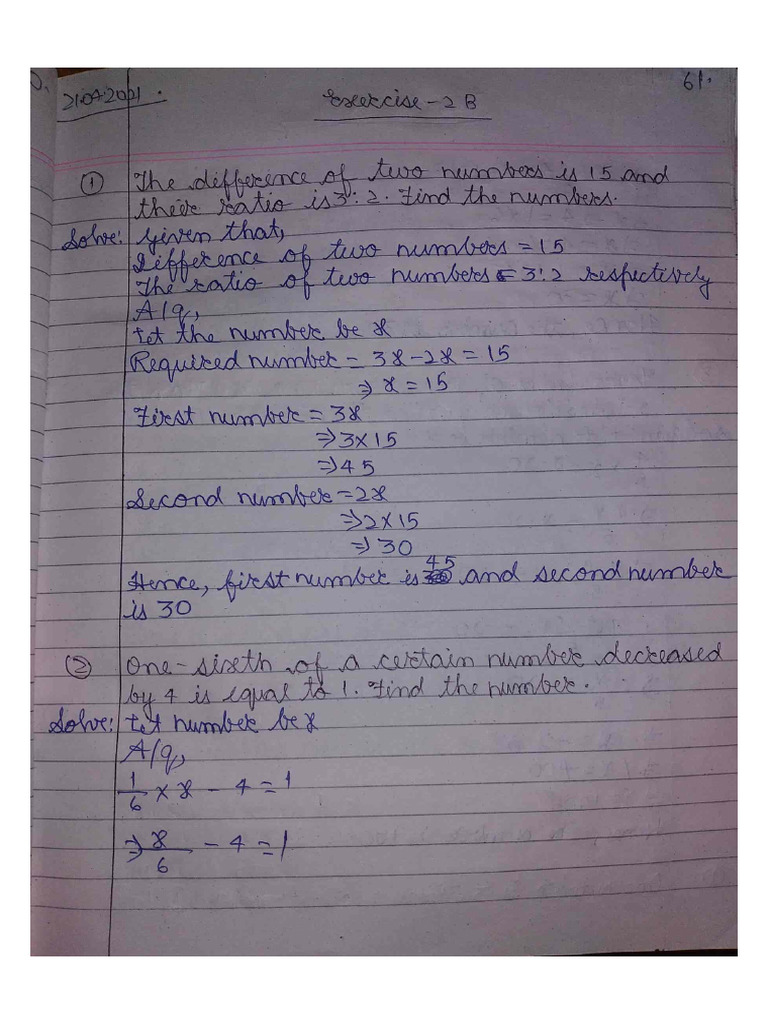 21.04.2021.
Exercise - 2 B
61.
① The difference of two numbers is 15 and
their ratio is 3:2. Find the numbers.
Solve: Given that,
Difference of two numbers = 15
The ratio of two numbers = 3:2 respectively
A/q,
Let the number be x
Required number = 3x - 2x = 15
⇒ x = 15
First number = 3x
⇒ 3 × 15
⇒ 45
Second number = 2x
⇒ 2 × 15
⇒ 30
Hence, first number is 45 and second number
is 30
② One-sixth of a certain number decreased
by 4 is equal to 1. Find the number.
Solve: Let number be x
A/q,
1/6 × x - 4 = 1
⇒ x/6 - 4 = 1